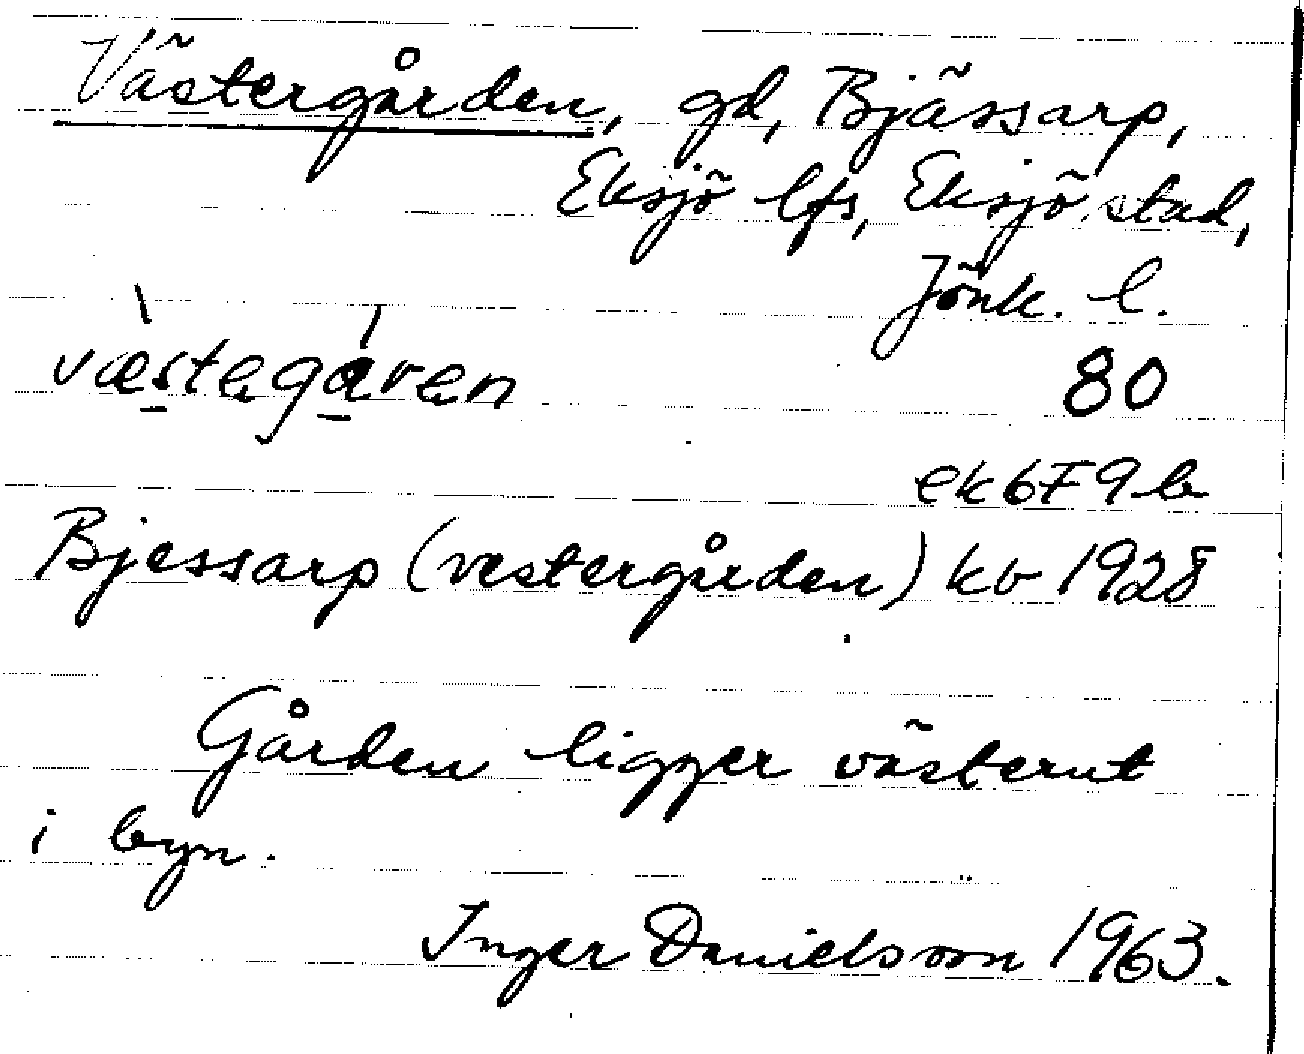 Västergården, gd, Bjässarp,
Eksjö lfs, Eksjö stad,
Jönk. l.
væ̀stəgáren
80
ek 6F9b
Bjessarp (vestergården) kb 1928
Gården ligger västerut
i byn.
Inger Danielsson 1963.